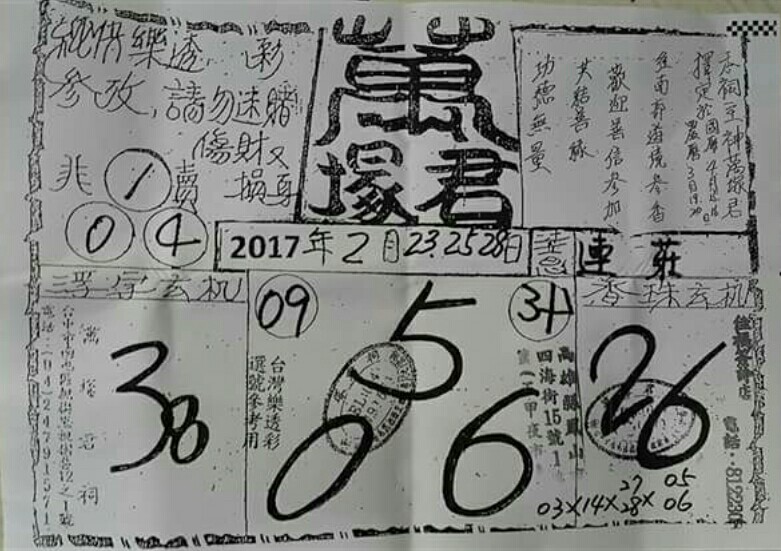 純供樂透彩
參攷,請勿迷賭
傷財又
損身
非1賣
0 4
萬
塚君
本祠主神萬塚君
擇定於國曆4月
農曆3月19.20日
往南部遶境參香
歡迎善信參加
共結善緣
功德無量
2017年2月23.25.28日
連莊
浮字玄机
09
34
香珠玄机
38
5
0 6
26
萬塚君祠
台灣樂透彩
選號參考用
高雄縣鳳山
四海街15號1
電話:8122
03×14×28×06
27 05